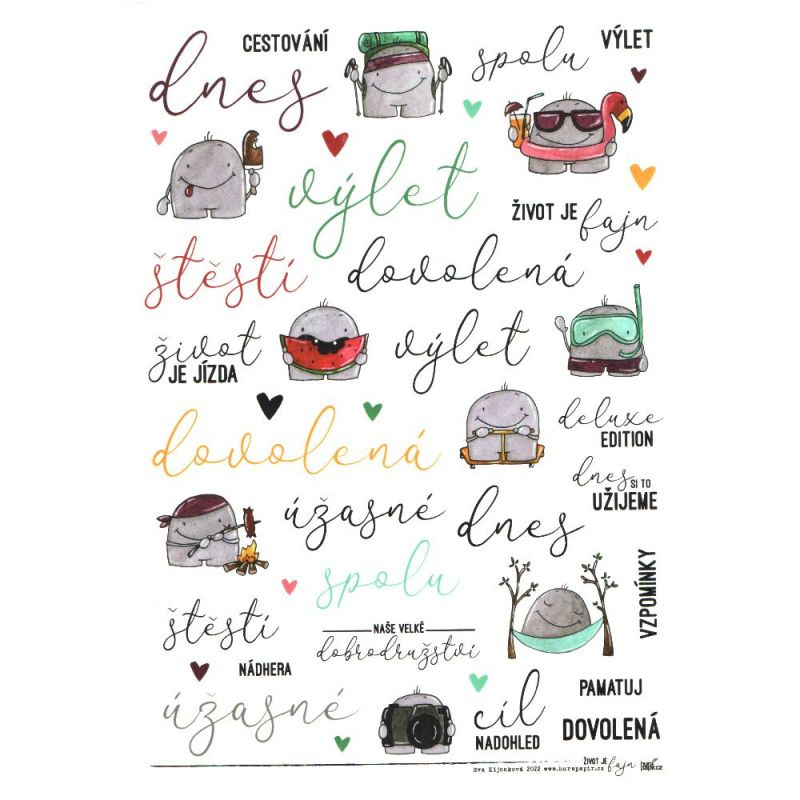 CESTOVÁNÍ
dnes
spolu
VÝLET
výlet
ŽIVOT JE fajn
štěstí
dovolená
život
JE JÍZDA
výlet
dovolená
deluxe
EDITION
dnes SI TO
UŽIJEME
úžasné
dnes
spolu
VZPOMÍNKY
štěstí
NAŠE VELKÉ
dobrodružství
NÁDHERA
úžasné
cíl
NADOHLED
PAMATUJ
DOVOLENÁ
ŽIVOT JE fajn
Eva Kijonková 2022 www.hurapapir.cz